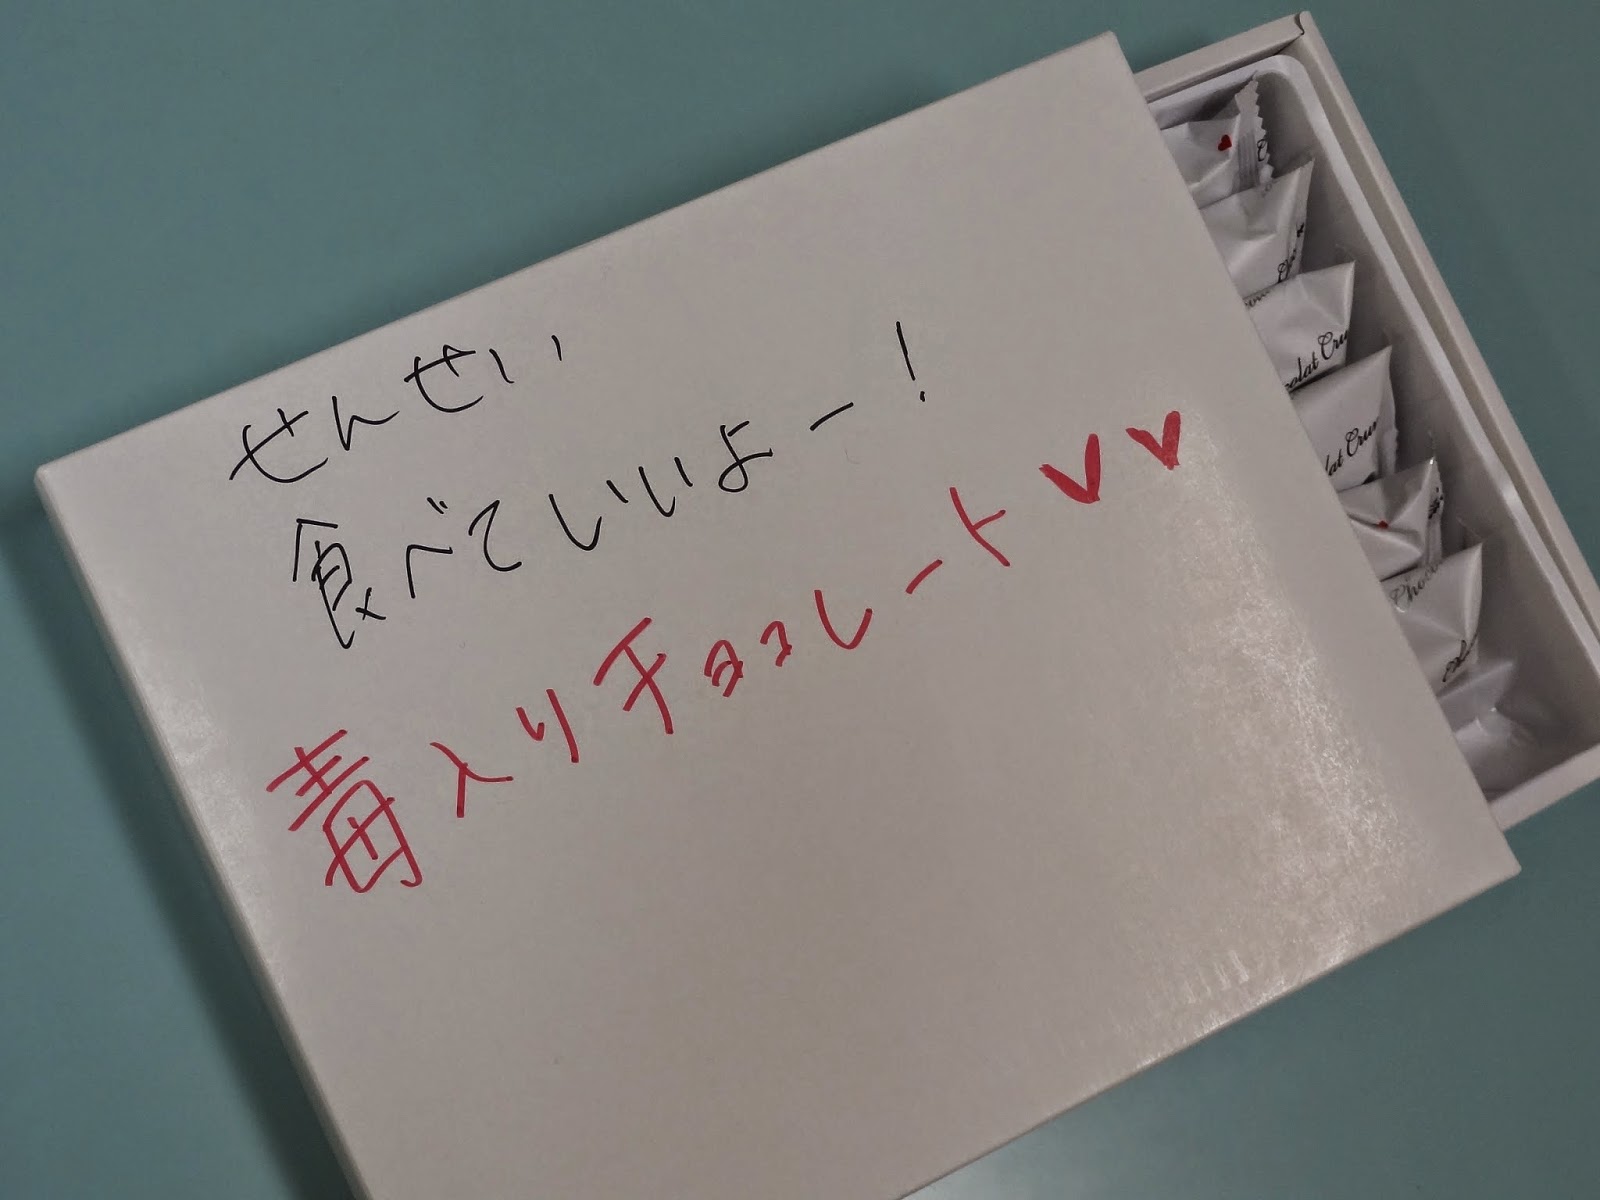 せんせい
食べていいよー!
毒入りチョコレート♥♥
Chocolat Crun